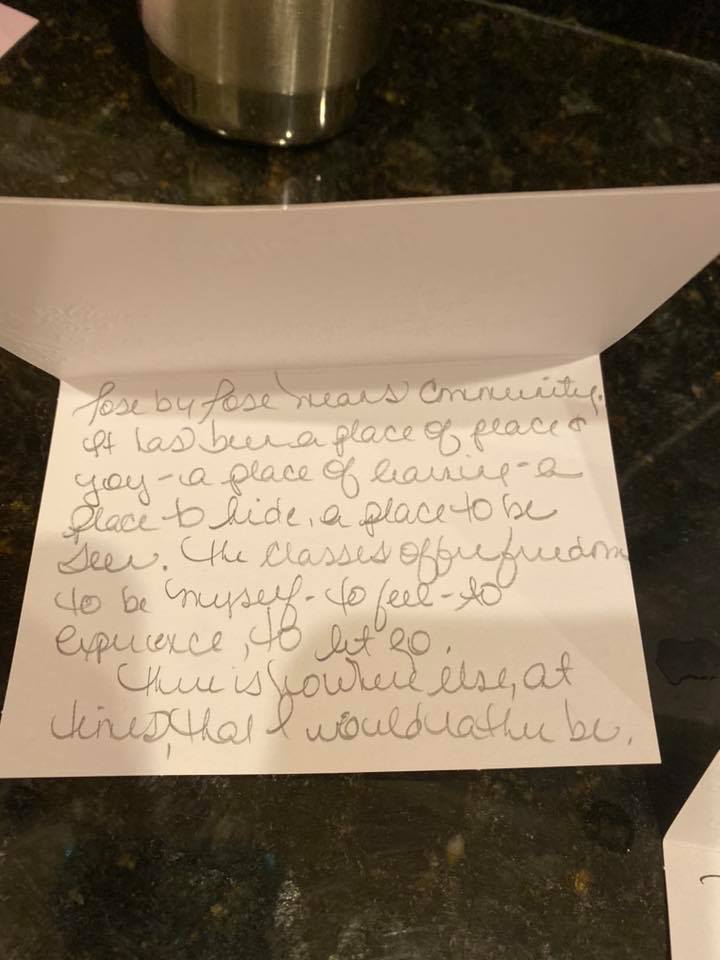 Pose by Pose means Community.
It has been a place of peace &
joy - a place of learning - a
place to hide, a place to be
seen. The classes offer freedom
to be myself - to feel - to
experience, to let go.
There is nowhere else, at
times, that I would rather be.